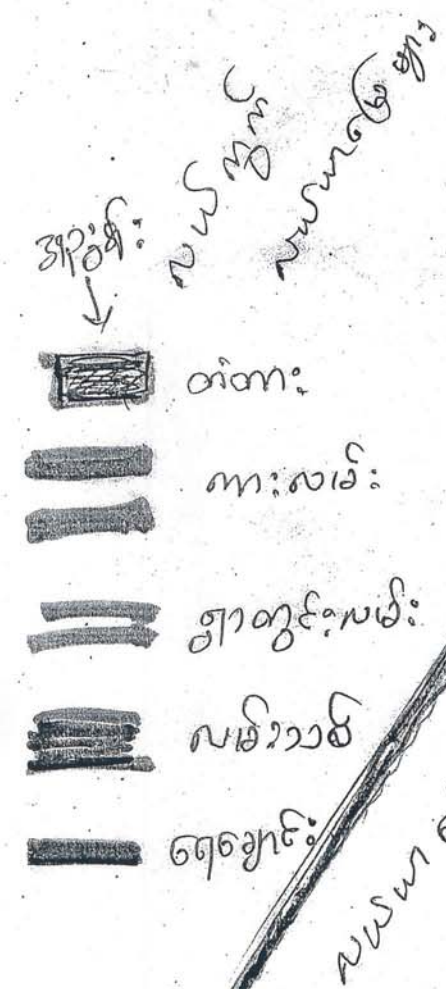 လယ်ကွက်
လယ်ယာမြေများ
အညွှန်း
တံတား
ကားလမ်း
ရွာတွင်းလမ်း
လမ်းသစ်
ရေချောင်း
လယ်ယာ